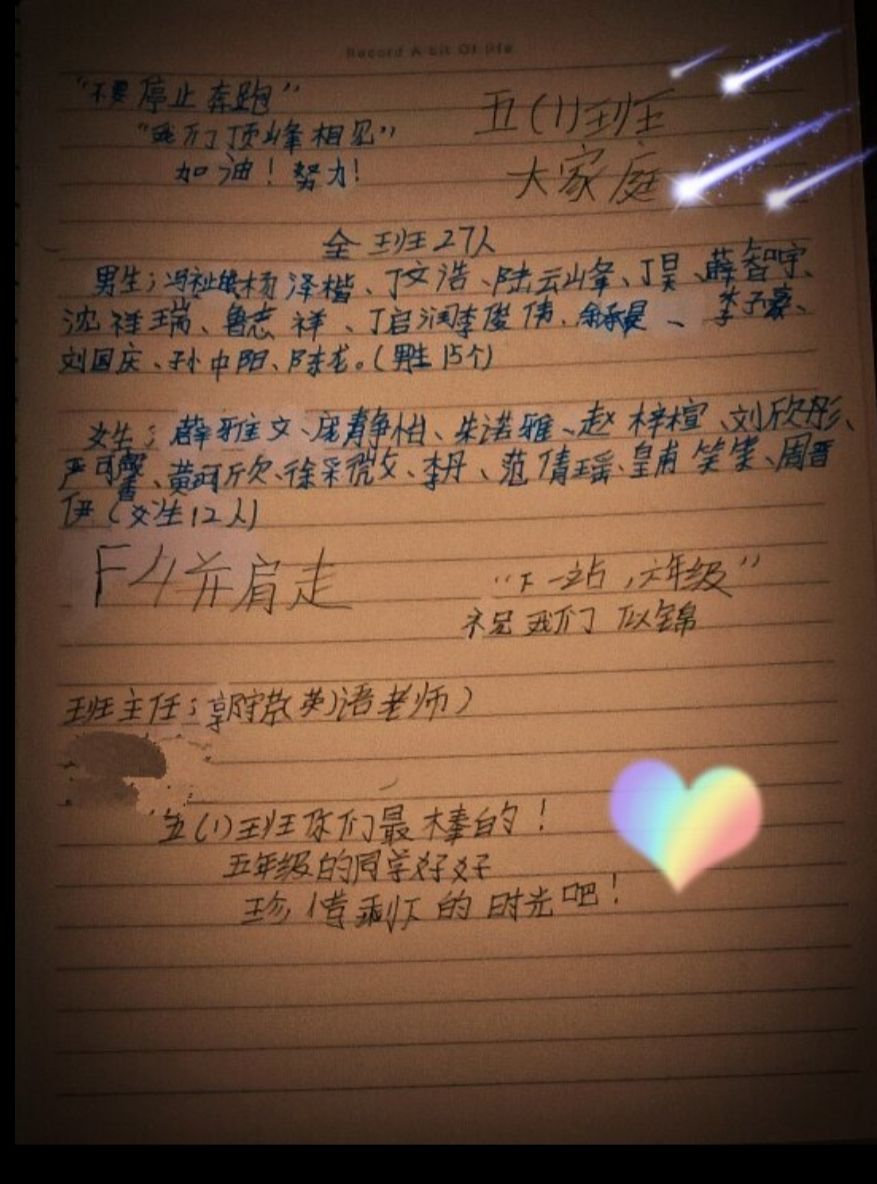 Record A bit Of life
"不要停止奔跑"
"我们顶峰相见"
加油！努力!
五(1)班
大家庭
全班27人
男生；冯祉皓杨泽楷、丁文浩、陆云峰、丁昊、薛智宇、
沈祥瑞、鲁志祥、丁启润李俊伟、余承晏、李子豪、
刘国庆、孙中阳、陈龙。(男生15个)
女生；薛雅文、庞静怡、朱诺雅、赵梓楦、刘欣彤、
严可馨、黄珂欣、徐采微、李丹、范倩瑶、皇甫笑寒、周晋
伊(女生12人)
F4并肩走
"下一站，六年级"
祝我们似锦
班主任；郭(英语老师)
五(1)班你们最棒的！
五年级的同学好好
珍惜剩下的时光吧！